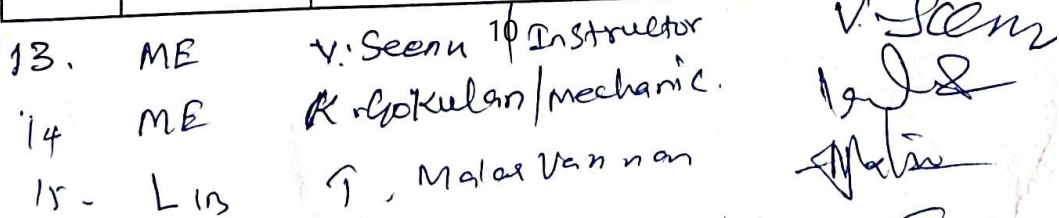 13. ME V. Seenu 10 Instructor V. Seenu
14 ME K. Gokulan / Mechanic.
15 - LIB T. Malar Vannan